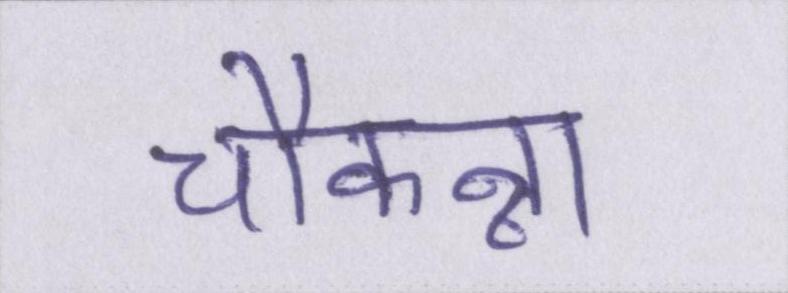 चौकन्ना